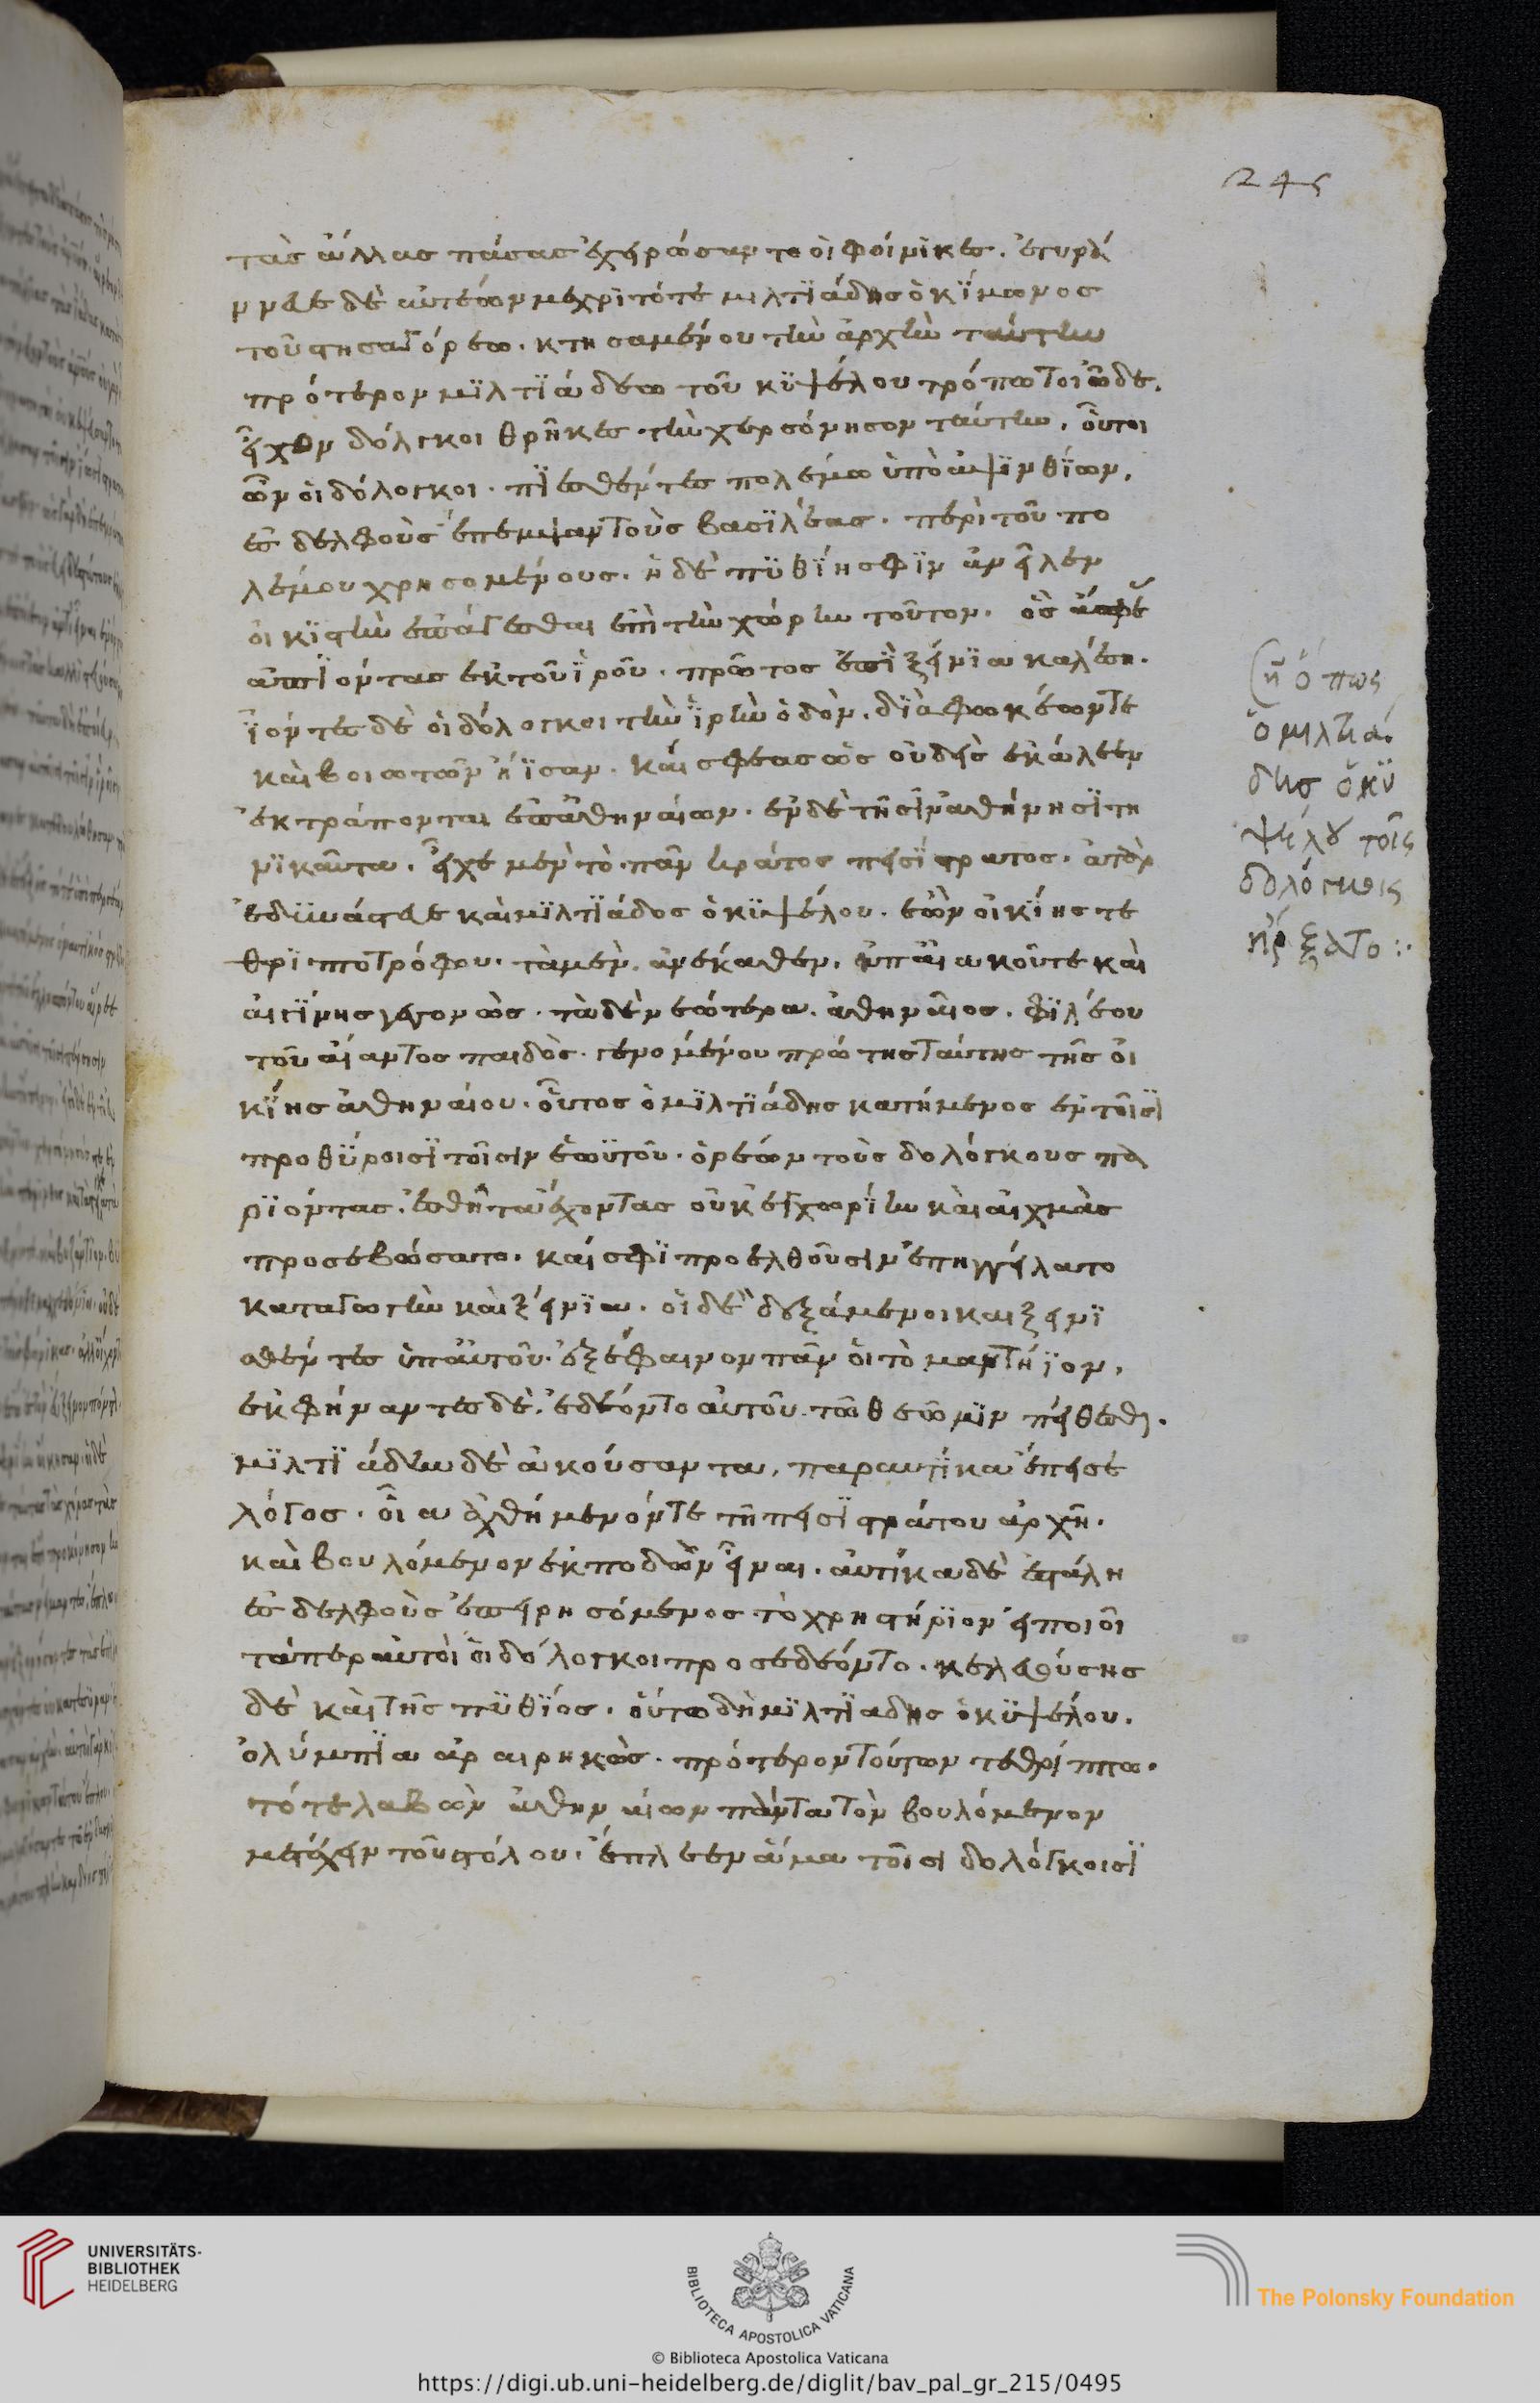 245
τὰς ἄλλας πάσας ἐχειρώσαντο οἱ φοίνικες. ἐτυρά
ννευε δὲ αὐτέων μέχρι τότε μιλτϊάδης ὁ κΐμωνος
τοῦ στησαγόρεω. κτησαμένου τὴν ἀρχὴν ταύτην
πρότερον μϊλτϊάδεω τοῦ κϋψέλου τρόπω τοιῶδε.
εἶχον δόλογκοι θρῆκες τὴν χερσόνησον ταύτην. οὗτοι
ὦν οἱ δόλογκοι. πϊεσθέντες πολέμω ὑπὸ ἀψϊνθΐων.
ἐς δελφοὺς ἔπεμψαν τοὺς βασϊλέας. περὶ τοῦ πο
λέμου χρησομένους. ἡ δὲ πϋθΐη σφϊν ἀνεῖλεν
οἰκϊστὴν ἐπάγεσθαι ἐπὶ τὴν χώρην τοῦτον. ὃς
ἀπϊόντας ἐκ τοῦ ϊροῦ. πρῶτος ἐπϊ ξείνϊα καλέση.
ϊόντες δὲ οἱ δόλογκοι τὴν ϊρὴν ὁδὸν. δϊὰ φωκέων τε
καὶ βοιωτῶν ἤϊσαν. καί σφεας ὡς οὐδεὶς ἐκάλεεν
ἐκτράπονται ἐπ ἀθηναίων. ἐν δὲ τῆσιν ἀθήνησϊ τη
νϊκαῦτα. εἶχε μὲν τὸ πᾶν κράτος πεισΐστρατος. ἀτὰρ
ἐδϋνάστευε καὶ μϊλτϊάδος ὁ κϋψέλου. ἐὼν οἰκΐης τε
θρϊπποτρόφου. τὰ μὲν ἀνέκαθεν. ἀπ αἰακοῦ τε καὶ
αἰγΐνης γεγονὼς. τὰ δὲ νεώτερα. ἀθηναῖος. φϊλέου
τοῦ αἴαντος παιδὸς. γενομένου πρώτης ταύτης τῆς οἰ
κΐης ἀθηναίου. οὗτος ὁ μϊλτϊάδης κατήμενος ἐν τοῖσϊ
προθΰροισϊ τοῖσιν ἑωϋτοῦ. ὁρέων τοὺς δολόγκους πα
ρϊόντας. ἐσθῆτα ἔχοντας οὐκ ἐγχωρΐην καὶ αἰχμὰς
προσεβώσατο. καί σφϊ προελθοῦσιν ἐπηγγείλατο
καταγωγὴν καὶ ξείνϊα. οἱ δὲ δεξάμενοι και ξεινϊ
σθέντες ὑπ αὐτοῦ. ἐξέφαινον πᾶν οἱ τὸ μαντήϊον.
ἐκφήναντες δὲ. ἐδέοντο αὐτοῦ τῶ θεῶ μϊν πείθεσθαι.
μϊλτϊάδην δὲ ἀκούσαντα, παραυτΐκα ἔπεισε
λόγος. οἷα ἀχθήμενόν τε τῆ πεισϊστράτου ἀρχῆ.
καὶ βουλόμενον ἐκποδὼν εἶναι. αὐτΐκα δὲ ἐστάλη
ἐς δελφοὺς ἐπειρησόμενος τὸ χρηστήρϊον εἰ ποιοῖ
τάπερ αὐτοῖ οἱ δόλογκοι προσεδέοντο. κελευούσης
δὲ καὶ τῆς πϋθΐης. οὕτω δὴ μϊλτϊαδης ὁ κϋψέλου.
ὀλύμπϊα ἀραιρηκὼς. πρότερον τούτων τεθρίππω.
τότε λαβὼν ἀθηναίων πάντα τὸν βουλόμενον
μετέχειν τοῦ στόλου. ἔπλεεν ἅμα τοῖσι δολόγκοισϊ
ἢ ὅπως
ὁ μιλτιά
δης ὁ κϋ
ψέλου τοῖς
δολόγκοις
ἦρξατο:·
UNIVERSITÄTS-
BIBLIOTHEK
HEIDELBERG
BIBLIOTECA APOSTOLICA VATICANA
© Biblioteca Apostolica Vaticana
The Polonsky Foundation
https://digi.ub.uni-heidelberg.de/diglit/bav_pal_gr_215/0495